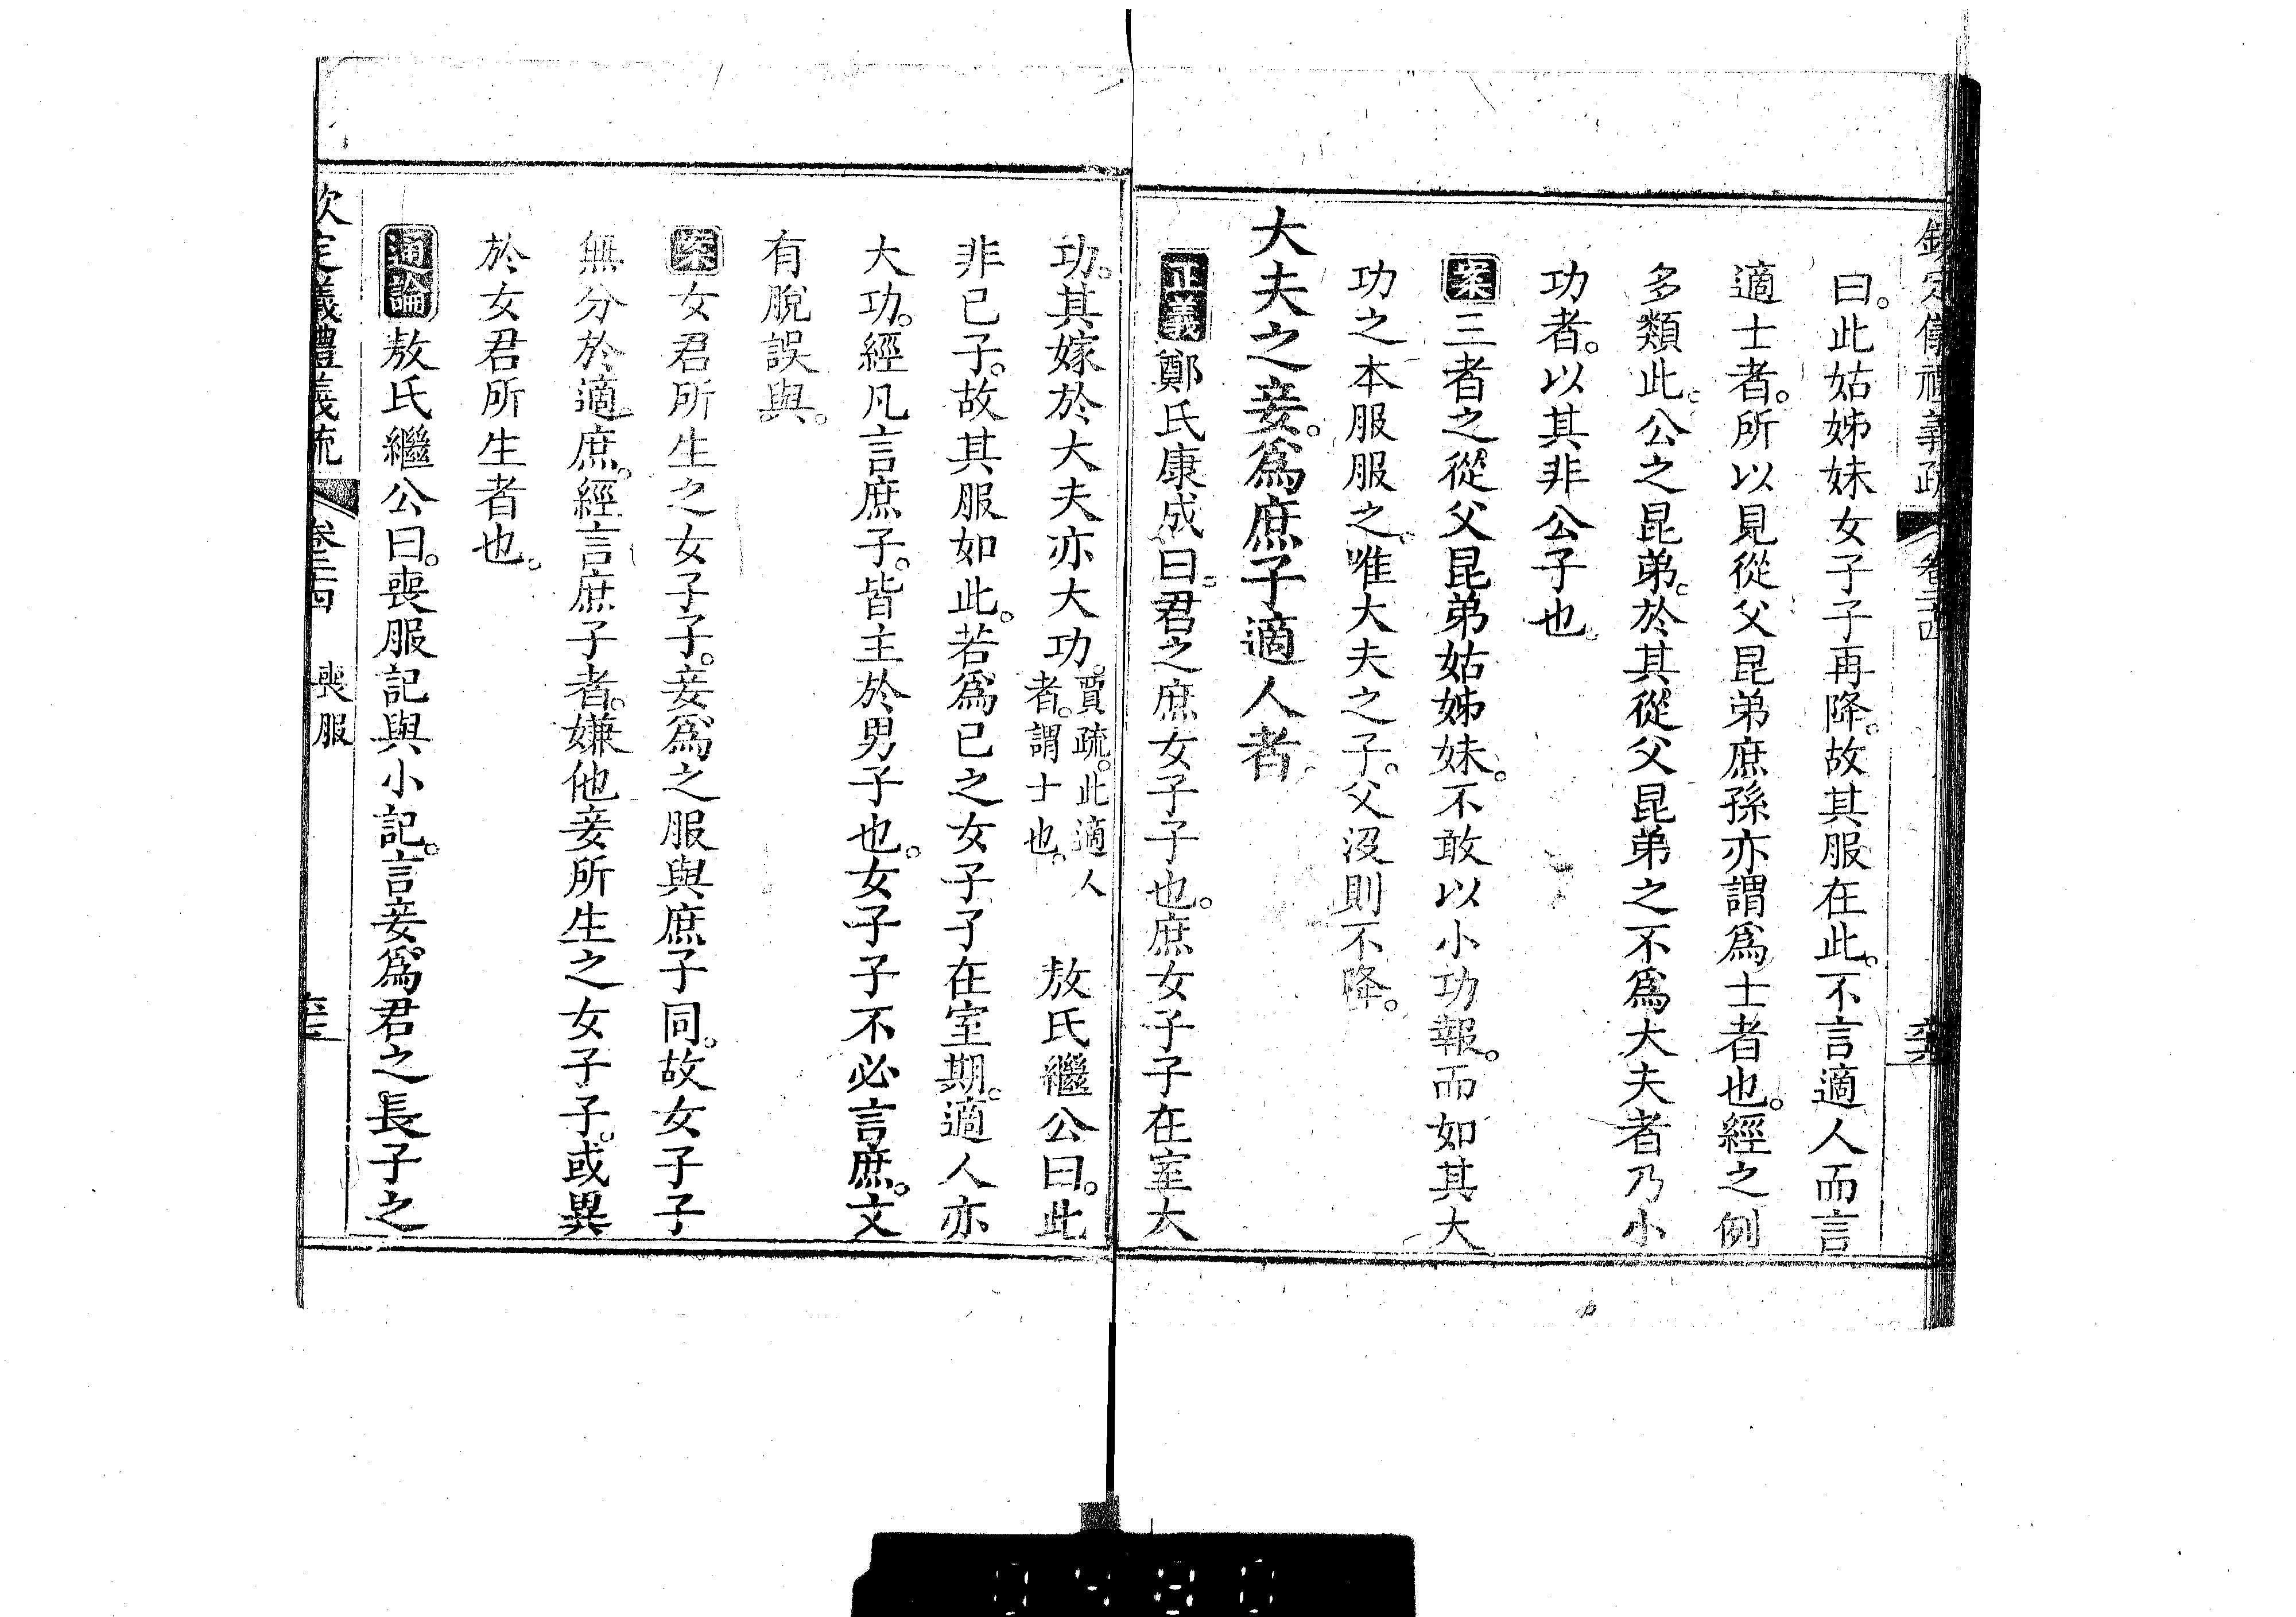 欽定儀禮義疏 卷二十四
曰。此姑姊妹女子子再降。故其服在此。不言適人而言
適士者。所以見從父昆弟庶孫亦謂爲士者也。經之例
多類此。公之昆弟。於其從父昆弟之不爲大夫者乃小
功者。以其非公子也。
案三者之從父昆弟姑姊妹。不敢以小功報。而如其大
功之本服服之。唯大夫之子。父沒則不降。
大夫之妾。爲庶子適人者。
正義鄭氏康成曰。君之庶女子子也。庶女子子在室大
功。其嫁於大夫亦大功。賈疏。此適人者。謂士也。 敖氏繼公曰。此
非已子。故其服如此。若爲已之女子子在室期。適人亦
大功。經凡言庶子。皆主於男子也。女子子不必言庶。文
有脫誤與。
案女君所生之女子子。妾爲之服與庶子同。故女子子
無分於適庶。經言庶子者。嫌他妾所生之女子子。或異
於女君所生者也。
通論敖氏繼公曰。喪服記與小記。言妾爲君之長子之
欽定儀禮義疏 卷二十四 喪服